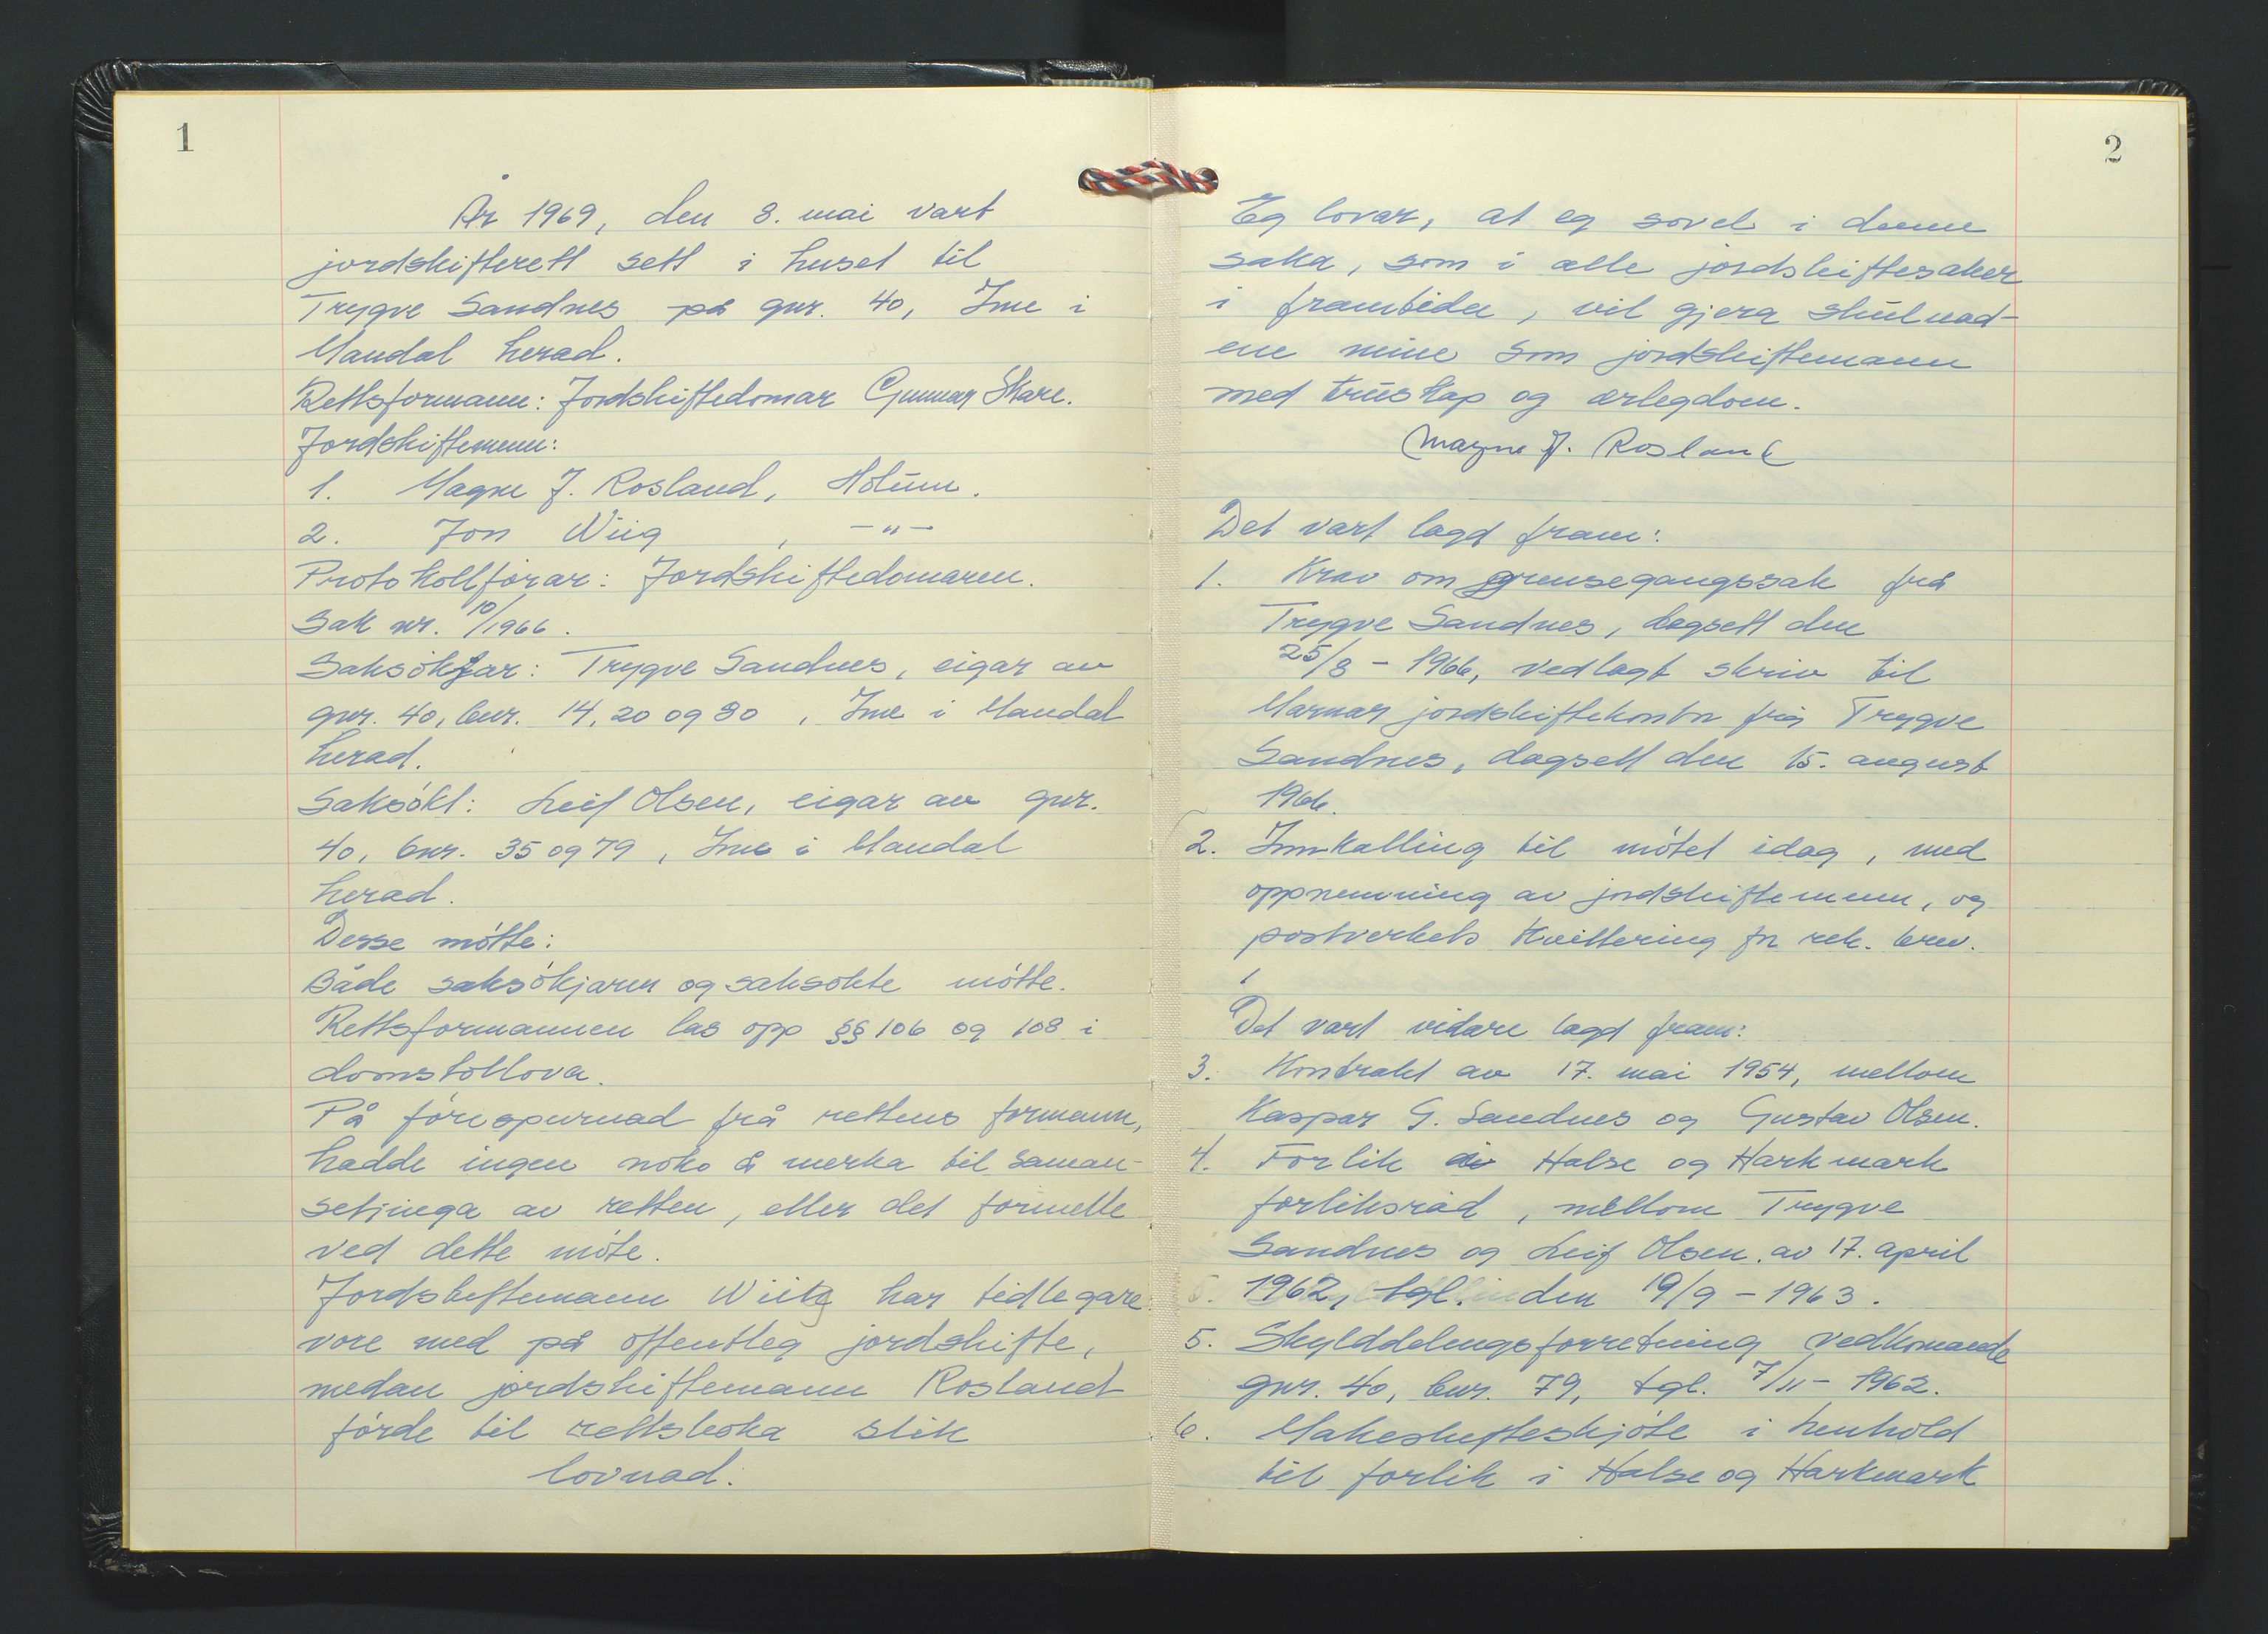 1
År 1969, den 8. mai vart
jordskifterett sett i huset til
Trygve Sandnes på gnr. 40, Ime i
Mandal herad.
Rettsformann: Jordskiftedomar Gunnar Skare.
Jordskiftemenn:
1. Magne J. Rosland, Holum.
2. Jon Wiig , -"-
Protokollførar: Jordskiftedomaren.
Sak nr. 10/1966.
Saksøkjar: Trygve Sandnes, eigar av
gnr. 40, bnr. 14, 20 og 80, Ime i Mandal
herad.
Saksøkt: Leif Olsen, eigar av gnr.
40, bnr. 35 og 79, Ime i Mandal
herad.
Desse møtte:
Både saksøkjaren og saksøkte møtte.
Rettsformannen las opp §§ 106 og 108 i
domstollova.
På førespurnad frå rettens formann,
hadde ingen noko å merka til saman-
setjinga av retten, eller det formelle
ved dette møte.
Jordskiftemann Wiig har tidlegare
vore med på offentleg jordskifte,
medan jordskiftemann Rosland
førde til rettsboka slik
lovnad:
2
Eg lovar, at eg sovel i denne
saka, som i alle jordskiftesaker
i framtida, vil gjera skulnad-
ene mine som jordskiftemann
med truskap og ærlegdom.
Magne J. Rosland
Det vart lagd fram:
1. Krav om grensegangssak frå
Trygve Sandnes, dagsett den
25/8 - 1966, vedlagt skriv til
Marnar jordskiftekontor frå Trygve
Sandnes, dagsett den 15. august
1966.
2. Innkalling til møtet idag, med
oppnemning av jordskiftemenn, og
postverkets kvittering for rek. brev.
Det vart vidare lagd fram:
3. Kontrakt av 17. mai 1954, mellom
Kaspar G. Sandnes og Gustav Olsen.
4. Forlik i Halse og Harkmark
forliksråd, mellom Trygve
Sandnes og Leif Olsen, av 17. april
1962, tgl. den 19/9 - 1963.
5. Skylddelingsforretning vedkomande
gnr. 40, bnr. 79, tgl. 7/11 - 1962.
6. Makeskifteskjøte i henhold
til forlik i Halse og Harkmark